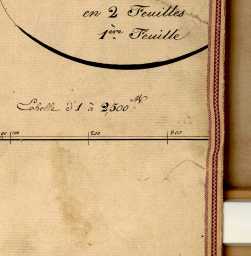 en 2 Feuilles
1ère Feuille
Echelle d'1 à 2,500 M
100 200